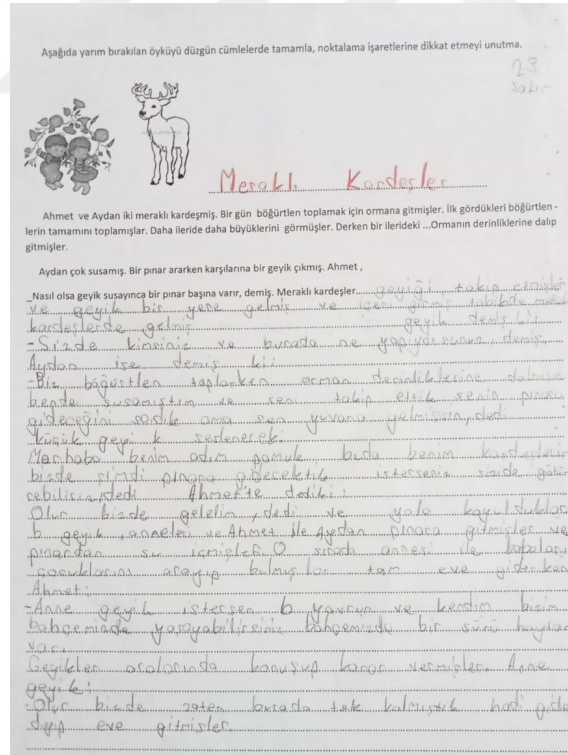 Aşağıda yarım bırakılan öyküyü düzgün cümlelerde tamamla, noktalama işaretlerine dikkat etmeyi unutma.
23
Satır
Meraklı Kardeşler
Ahmet ve Aydan iki meraklı kardeşmiş. Bir gün böğürtlen toplamak için ormana gitmişler. İlk gördükleri böğürtlen -
lerin tamamını toplamışlar. Daha ileride daha büyüklerini görmüşler. Derken bir ilerideki ...Ormanın derinliklerine dalıp
gitmişler.
Aydan çok susamış. Bir pınar ararken karşılarına bir geyik çıkmış. Ahmet ,
_Nasıl olsa geyik susayınca bir pınar başına varır, demiş. Meraklı kardeşler geyiği takip etmişler
ve geyik bir yere gelmiş ve içeri girmiş tabikide
kardeşlerde gelmiş geyik demiş ki
-Sizde kimsiniz ve burada ne yapıyorsunuz, demiş.
Aydan ise demiş ki:
-Biz böğürtlen toplarken orman derinliklerine
bende susamıştım ve seni takip ettik senin pınara
gideceğini sandık ama sen yuvana gelmişsin, dedi
küçük geyik seslenerek.
Merhaba benim adım pamuk buda benim
bizde şimdi pınara gidecektik isterseniz sizide
cebilirin, dedi Ahmet'te dediki:
Olur bizde gelelim, dedi ve yola koyuldular
b geyik, anneleri ve Ahmet ile Aydan pınara gitmişler ve
pınardan su içmişler. O sırada annesi ile babaları
çocuklarını arayıp bulmuşlar tam eve giderken
Ahmet:
-Anne geyik istersen 6 yavrun ve kendin bizim
bahçemizde yaşayabilirsiniz bahçemizde bir sürü
var.
Geyikler aralarında konuşup karar vermişler. Anne
geyik:
-Olur bizde zaten burada tek kalmıştık hadi
diyip eve gitmişler.